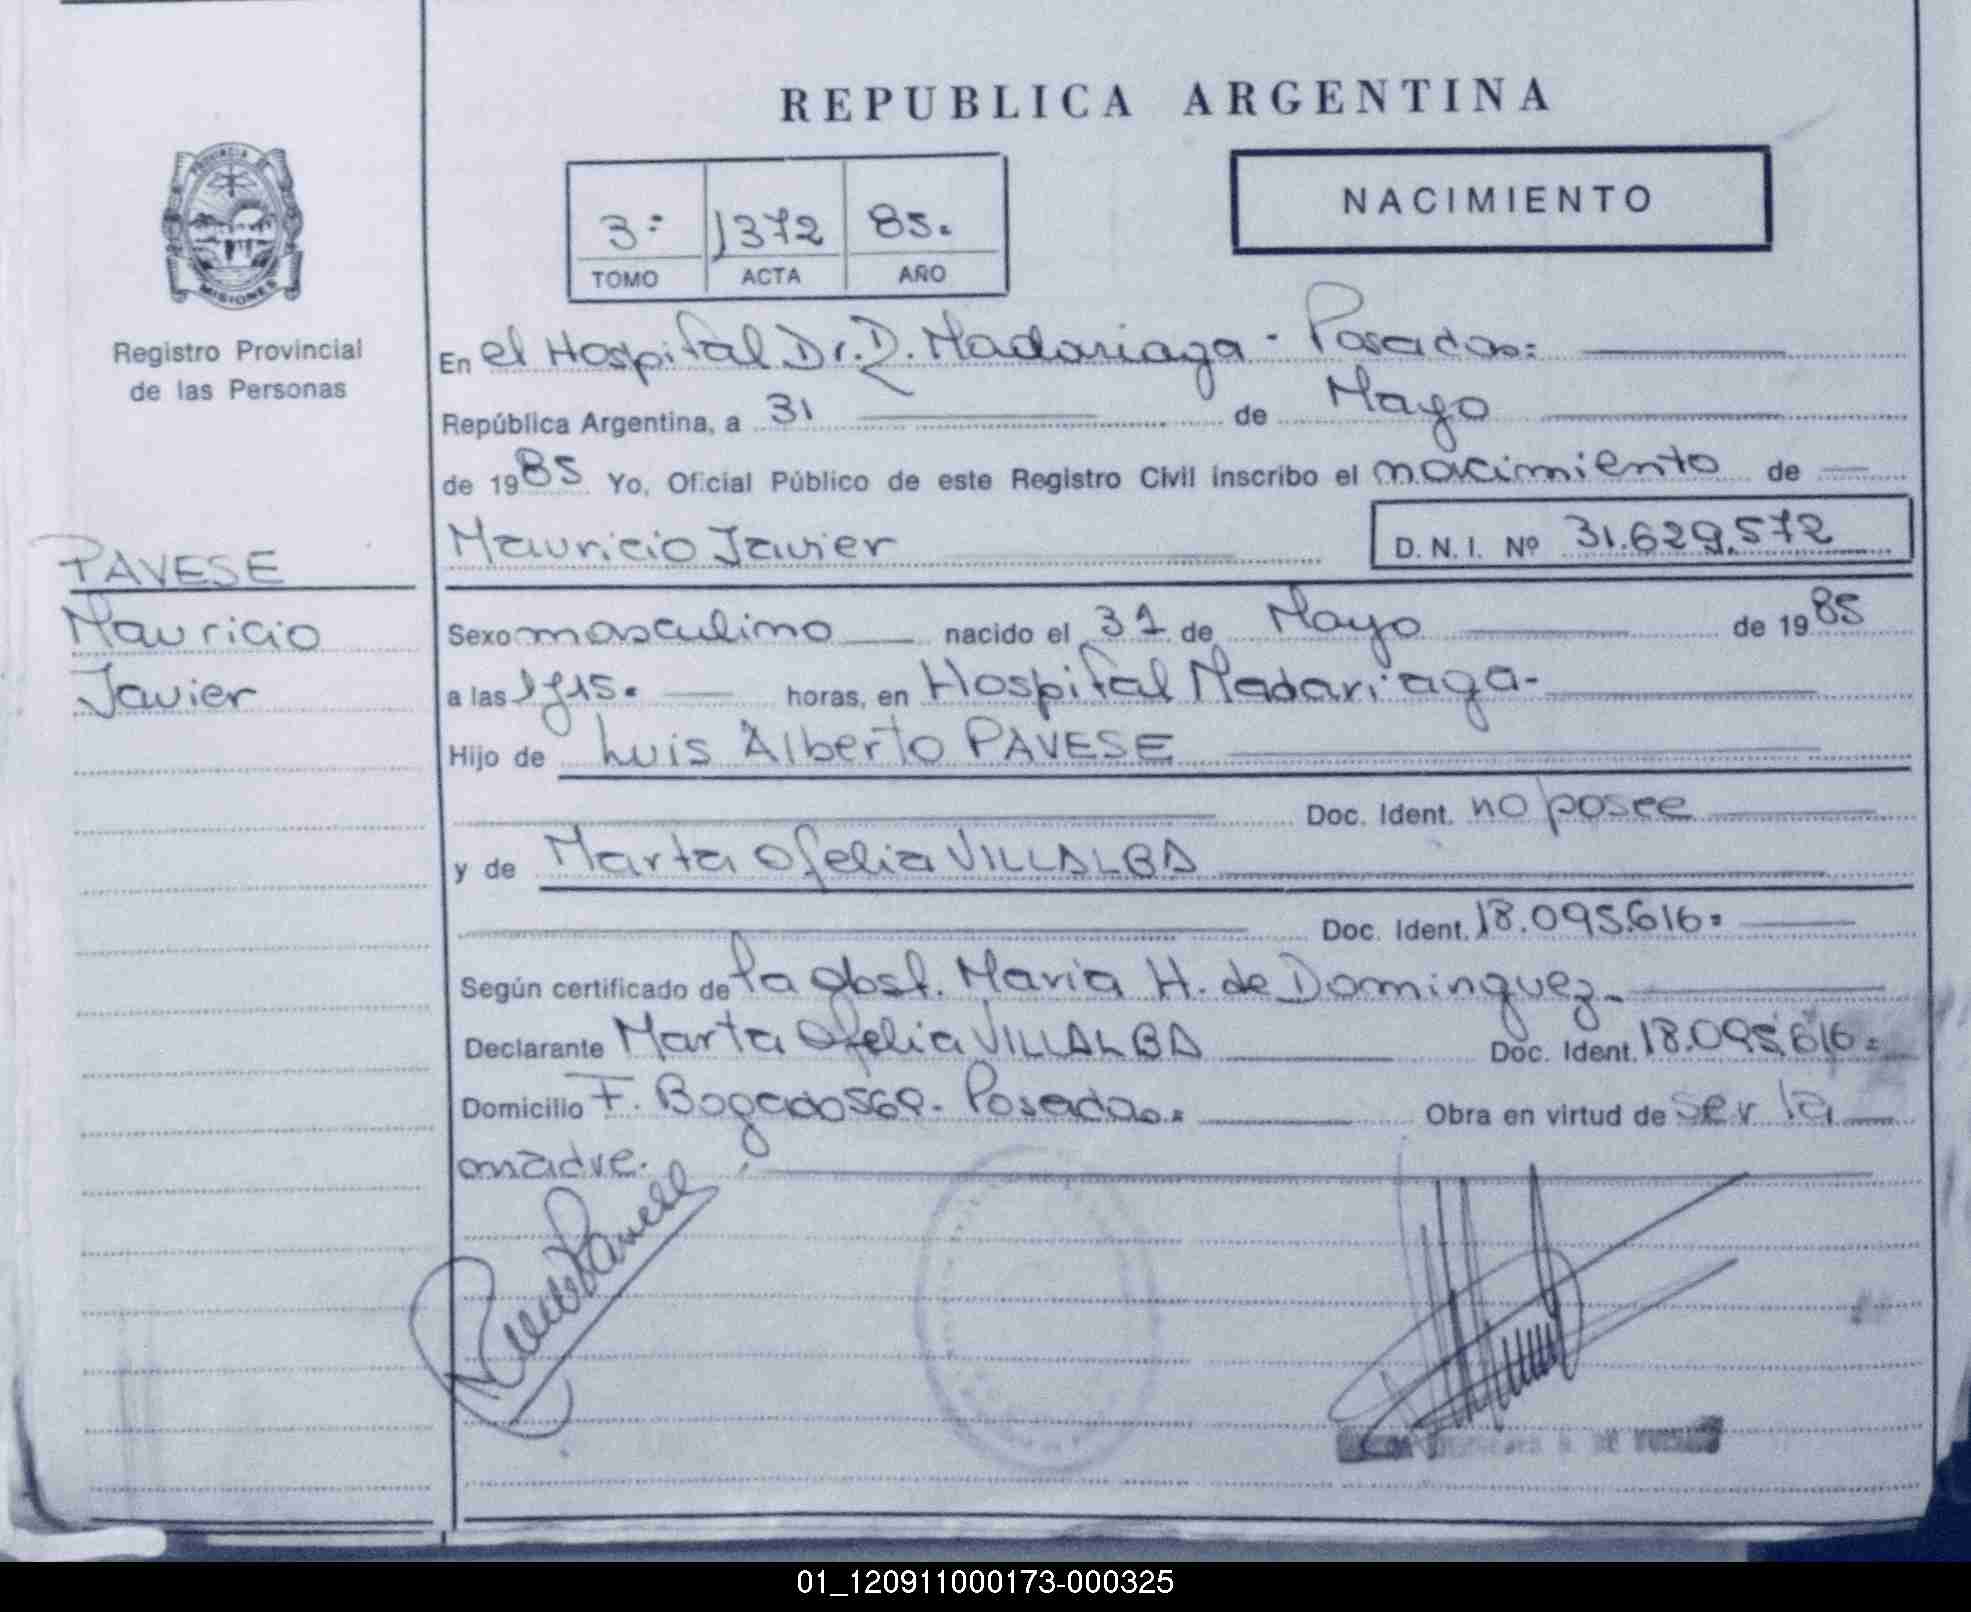 REPUBLICA ARGENTINA
PROVINCIA DE
MISIONES
Registro Provincial
de las Personas
3= 1372 85.
TOMO ACTA AÑO
NACIMIENTO
En el Hospital Dr. R. Madariaga - Posadas=
República Argentina, a 31 de Mayo
de 1985 Yo, Oficial Público de este Registro Civil inscribo el nacimiento de
Mauricio Javier D.N.I. Nº 31.629.572
PAVESE
Mauricio
Javier
Sexo masculino nacido el 31 de Mayo de 1985
a las horas, en Hospital Madariaga-
Hijo de Luis Alberto PAVESE
Doc. Ident. no posee
y de Marta Ofelia VILLALBA
Doc. Ident. 18.095.616=
Según certificado de la obst. Maria H. de Dominguez-
Declarante Marta Ofelia VILLALBA Doc. Ident. 18.095.616=
Domicilio F. Bogado 560- Posadas= Obra en virtud de ser la
madre.
01_120911000173-000325